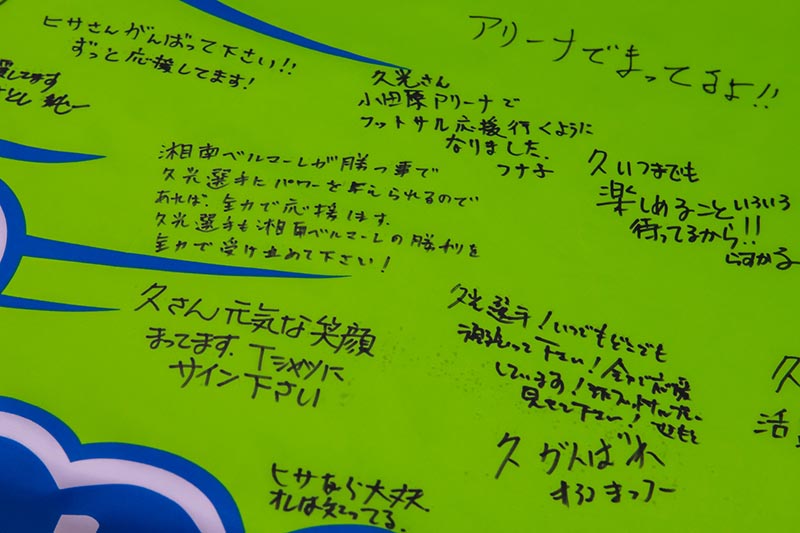 ヒサさんがんばって下さい!!
ずっと応援してます!
してます
アリーナでまってるよ!!
久光さん
小田原アリーナで
フットサル応援行くように
なりました.
フナ子
湘南ベルマーレが勝つ事で
久光選手にパワーを与えられるので
あれば、全力で応援します.
久光選手も湘南ベルマーレの勝利を
全力で受け止めて下さい!
久いつまでも
楽しめること いろいろ
待ってるから!!
久さん元気な笑顔
まってます. Tシャツに
サイン下さい
久光選手!いつでもどこでも
って下さい!全力で応援
しています!
見せて下さい!
久 がんばれ
久
活
ヒサなら大丈夫
オレは知ってる.